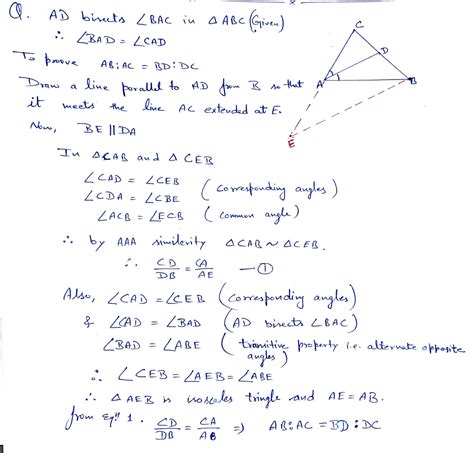 Q. AD bisects ∠BAC in △ABC (Given)
∴ ∠BAD = ∠CAD
To proove AB:AC = BD:DC
Draw a line parallel to AD from B so that
it meets the line AC extended at E.
Now, BE || DA
In △CAB and △CEB
∠CAD = ∠CEB
∠CDA = ∠CBE (corresponding angles)
∠ACB = ∠ECB (common angle)
∴ by AAA similarity △CAB ~ △CEB.
∴ CD/DB = CA/AE —①
Also, ∠CAD = ∠CEB (corresponding angles)
& ∠CAD = ∠BAD (AD bisects ∠BAC)
∠BAD = ∠ABE (transitive property i.e. alternate opposite
angles)
∴ ∠CEB = ∠AEB = ∠ABE
∴ △AEB is isosceles tringle and AE = AB.
from Eqn 1. CD/DB = CA/AB ⇒ AB:AC = BD:DC
C
D
A
B
E